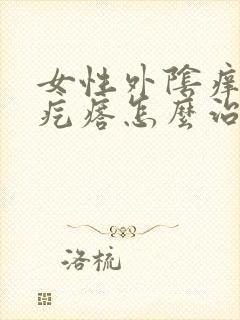 女性外陰痒
疙瘩怎麼治
洛梳